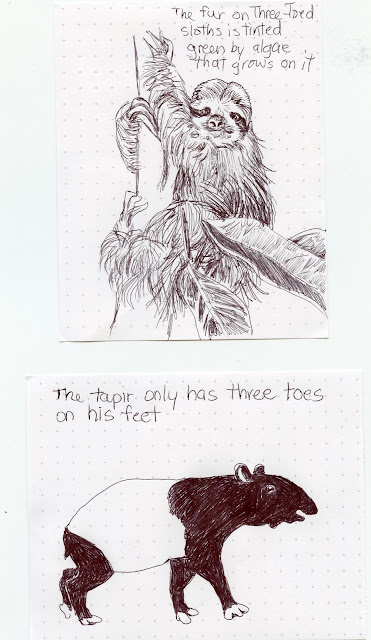 The fur on Three-Toed
sloths is tinted
green by algae
that grows on it
The tapir only has three toes
on his feet